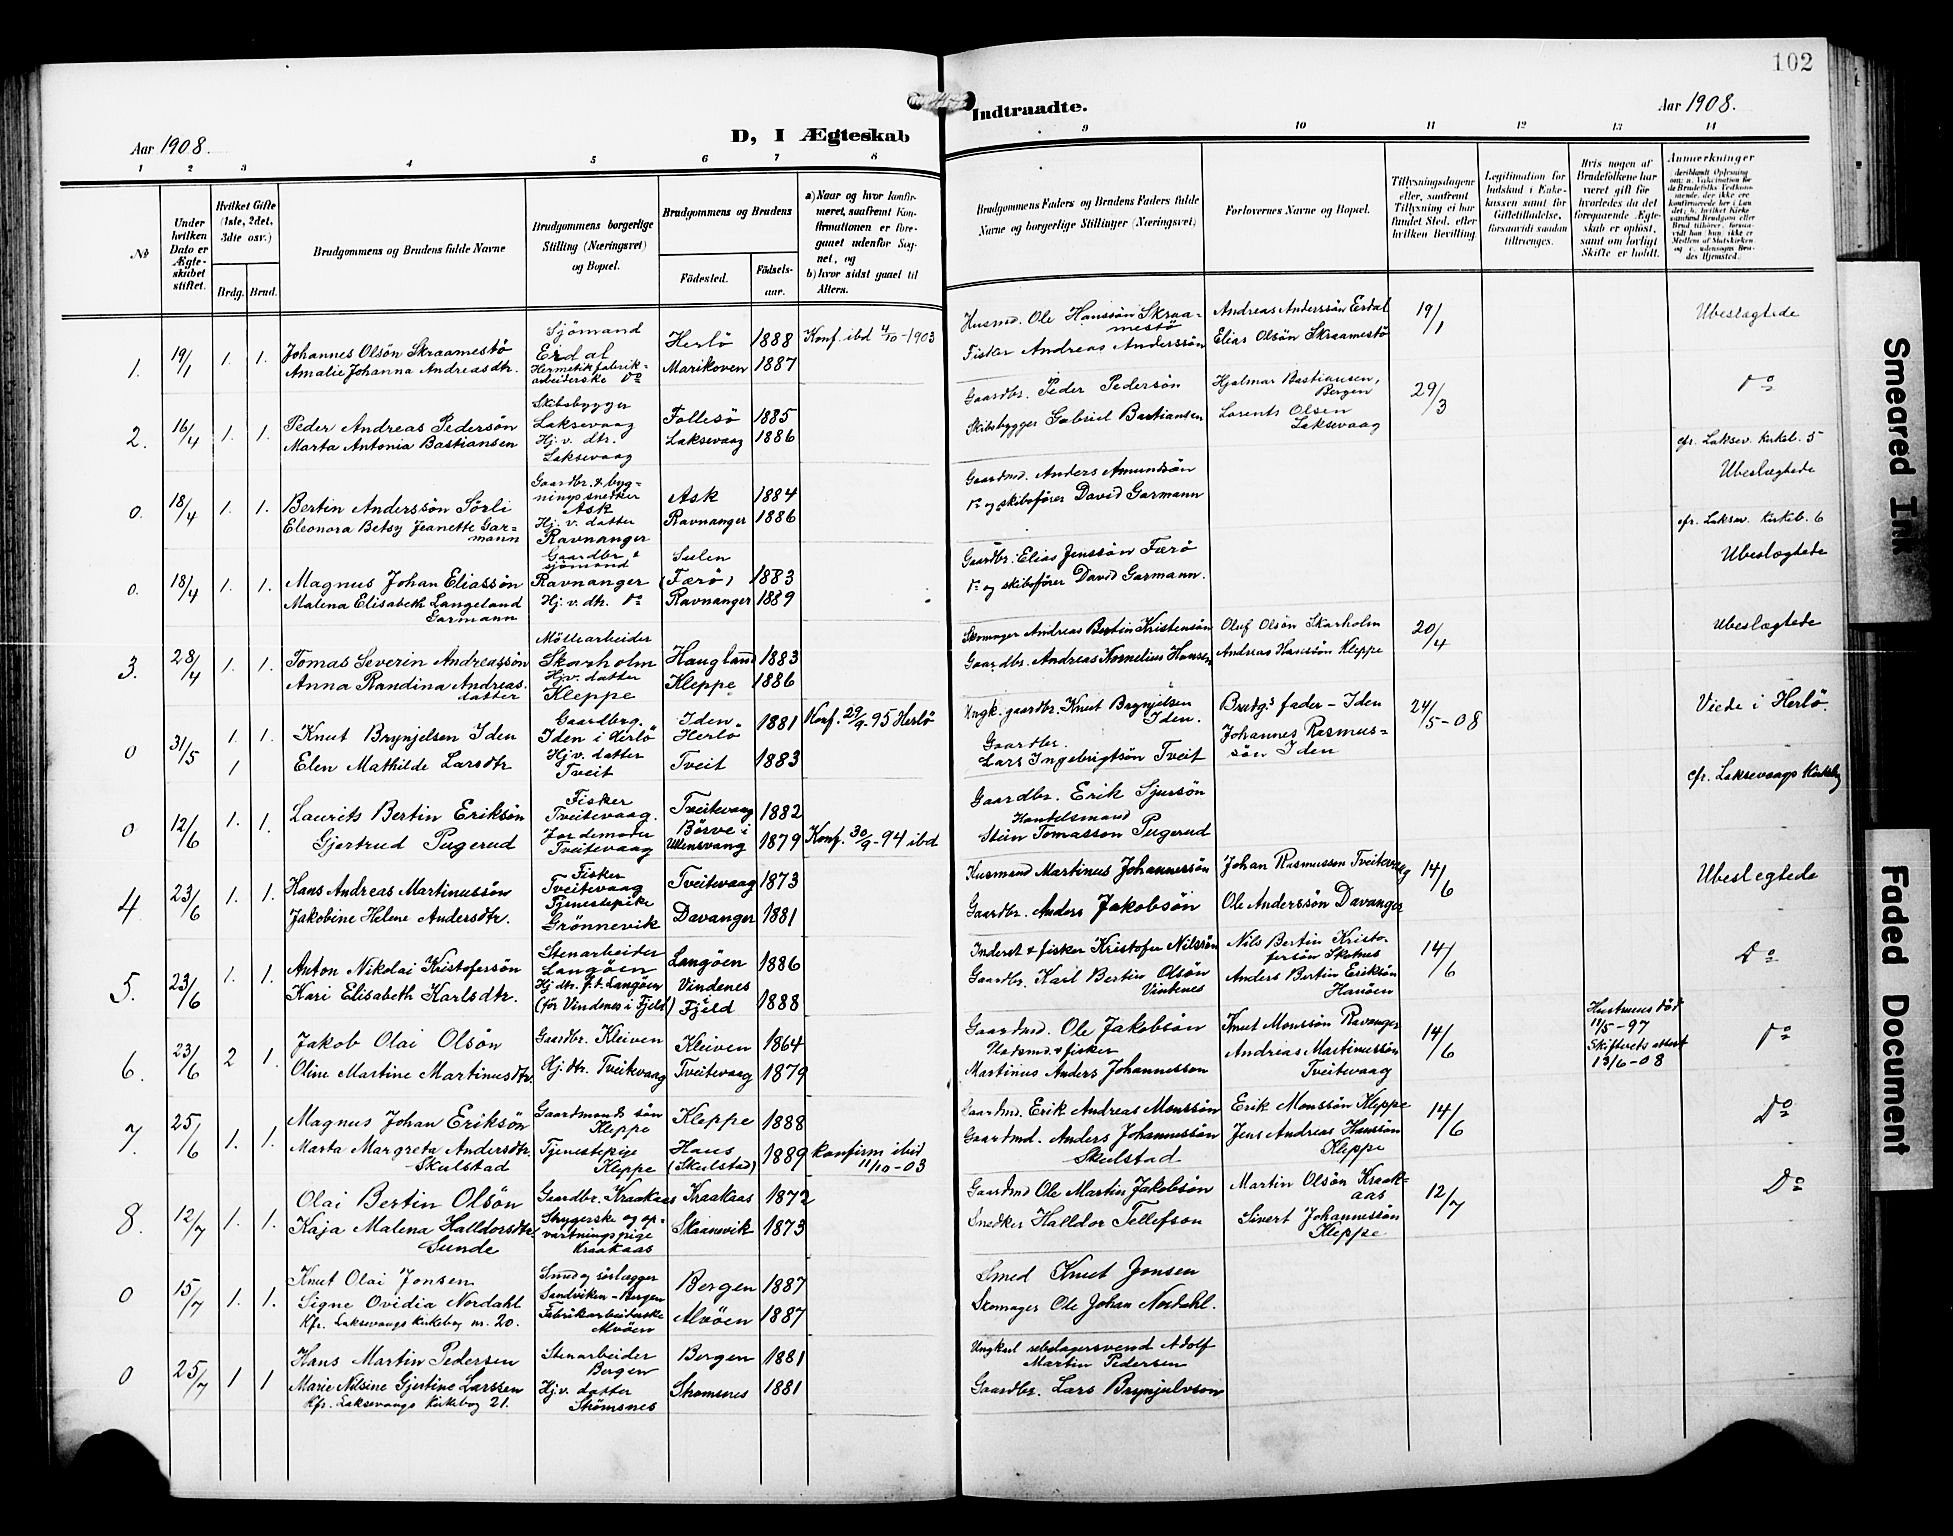 102
Aar 1908.
D, I Ægteskab
Indtraadte.
Aar 1908.
1 2 3 4 5 6 7 8
9 10 11 12 13 14
No
Under hvilken Dato er Ægteskabet stiftet.
Hvilket Gifte (1ste, 2det, 3die osv.)
Brdg. Brud.
Brudgommens og Brudens fulde Navne
Brudgommens borgerlige Stilling (Næringsvei) og Bopæl.
Brudgommens og Brudens
Födested.
Födsels-aar.
a) Naar og hvor konfirmeret, saafremt Konfirmationen er foregaaet udenfor Sognet, og
b) hvor sidst gaaet til Alters.
Brudgommens Faders og Brudens Faders fulde Navne og borgerlige Stillinger (Næringsvei)
Forlovernes Navne og Bopæl.
Tillysningsdagene eller, saafremt Tillysning ei har fundet Sted, efter hvilken Bevilling
Legitimation for Indskud i Enkekassen samt for Giftetilladelse, forsaavidt saadan tiltrenges.
Hvis nogen af Brudefolkene har været gift för hvorledes da det foregaaende Ægteskab er oplöst, samt om lovligt Skifte er holdt.
Anmærkninger
1. 19/1 1. 1.
Johannes Olsön Skraamestö
Amalie Johanna Andreasdtr.
Sjömand
Erdal
Hermetikfabrik-
arbeiderske Do
Herlö 1888
Marikoven 1887
Konf. ibd 4/10-1903
Husmd. Ole Hanssön Skraa-
mestö
Fisker Andreas Anderssön
Andreas Anderssön Erdal
Elias Olsön Skraamestö
19/1
Ubeslægtede
2. 16/4 1. 1.
Peder Andreas Pedersön
Marta Antonia Bastiansen
Skibsbygger
Laksevaag
Hj. v. dtr.
Laksevaag
Follesö 1885
Laksevaag 1886
Gaardbr. Peder Pedersön
Skibsbygger Gabriel Bastiansen
Hjalmar Bastiansen,
Bergen
Lorents Olsen
Laksevaag
29/3
Do
cfr. Laksev. Kirkeb. 5
0. 18/4 1. 1.
Bertin Anderssön Sörli
Eleonora Betsy Jeanette Gar-
mann
Gaardbr. & byg-
ningssnedker
Ask
Hj. v. datter
Ravnanger
Ask 1884
Ravnanger 1886
Gaardmd. Anders Amundsön
Do og skibsförer David Garmann
Ubeslægtede
cfr. Laksev. Kirkeb. 6
0. 18/4 1. 1.
Magnus Johan Eliassön
Malena Elisabeth Langeland
Garmann
Gaardbr &
sjömand
Ravnanger
Hj. v. dtr. Do
Sulen
(Færö) 1883
Ravnanger 1889
Gaardbr. Elias Jenssön Færö
Do og skibsförer David Garmann.
Ubeslægtede
3. 28/4 1. 1.
Tomas Severin Andreassön
Anna Randina Andreas.
datter
Möllearbeider
Skarholm
Hj. v. datter
Kleppe
Haugland 1883
Kleppe 1886
Skomager Andreas Bertin Kristensön
Gaardbr. Andreas Kornelius Hansen
Oluf Olsön Skarholm
Andreas Hanssön Kleppe
20/4
Ubeslægtede
0 31/5 1. 1.
1
Knut Brynjelsen Iden
Elen Mathilde Larsdtr
Gaardbrg.
Iden i Herlö
Hj. v. datter
Tveit
Iden
Herlö 1881
Tveit 1883
Konf. 29/9-95 Herlö
Ungk. gaardbr. Knut Brynjelsen
Iden.
Gaardbr.
Lars Ingebrigtsön Tveit
Brudg.s fader - Iden
Johannes Rasmus-
sön Iden
24/5-08
Viede i Herlö.
cfr. Laksevaags Kirkebg
0 12/6 1. 1.
Laurits Bertin Eriksön
Gjertrud Pugerud
Fisker
Tveitevaag.
Jordemoder
Tveitevaag
Tveitevaag 1882
Börve i
Ullensvang 1879
Konf. 30/9-94 ibd
Gaardbr. Erik Sjursön
Handelsmand
Stein Tomasson Pugerud
4 23/6 1. 1.
Hans Andreas Martinussön
Jakobine Helene Andersdtr.
Fisker
Tveitevaag
Tjenestepike
Grönnevik
Tveitevaag 1873
Davanger 1881
Husmand Martinus Johannessön
Gaardbr. Anders Jakobsön
Johan Rasmussön Tveitevaag
Ole Anderssön Davanger
14/6
Ubeslegtede
5. 23/6 1. 1.
Anton Nikolai Kristofersön
Kari Elisabeth Karlsdtr.
Stenarbeider
Langöen
Hj dtr. f.t. Langöen
(för Vindenes i Fjeld)
Langöen 1886
Vindenes
i
Fjeld 1888
Inderst & fisker Kristofer Nilssön
Gaardbr. Karl Bertin Olsön
Vindenes
Nils Bertin Kristo-
fersön Skehus
Anders Bertin Eriksön
Hanöen
14/6
Do
6. 23/6 2 1.
Jakob Olai Olsön
Oline Martine Martinusdtr.
Gaardbr. Kleiven
Hj. dtr. Tveitevaag
Kleiven 1864
Tveitevaag 1879
Gaardmd. Ole Jakobsön
Pladsmd. & fisker
Martinus Anders Johannessön
Knut Monssön Ravanger
Andreas Martinussön
Tveitevaag
14/6
Hustruens död
11/5-97
Skifterets attest
13/6-08
Do
7. 25/6 1. 1.
Magnus Johan Eriksön
Marta Margreta Andersdtr.
Skulstad
Gaardmands sön
Kleppe
Tjenestepige
Kleppe
Kleppe 1888
Haus
(Skulstad) 1889
Konfirm ibid
11/10-03
Gaardmd. Erik Andreas Monssön
Gaardmd. Anders Johannessön
Skulstad
Erik Monssön Kleppe
Jens Andreas Hanssön
Kleppe
14/6
Do
8. 12/7 1. 1.
Olai Bertin Olsön
Kaja Malena Halldorsdtr.
Sunde
Gaardbr. Kraakaas
Strygerske og op-
vartningspige
Kraakaas
Kraakaas 1872
Skaanevik 1873
Gaardmd Ole Martin Jakobsön
Snedker Halldor Tellefson
Martin Olsön Kraak-
aas
Sivert Johannessön
Kleppe
12/7
Do
0 15/7 1. 1.
Knut Olai Jonsen
Signe Ovidia Nordahl
Kfr. Laksevaags Kirkebog nr. 20.
Smed og rörlægger
Sandviken - Bergen
Fabrikarbeiderske
Alvöen
Bergen 1887
Alvöen 1887
Smed Knut Jonsen
Skomager Ole Johan Nordahl.
0 25/7 1 1
Hans Martin Pedersen
Marie Nilsine Gjertine Larssen
Kfr. Laksevaags Kirkebog 21.
Stenarbeider
Bergen
Hj. v. datter
Strömsnes
Bergen 1881
Stromsnes 1881
Ungkarl rebslagersvend Adolf
Martin Pedersen
Gaardbr. Lars Brynjulvson
Smeared Ink
Faded Document